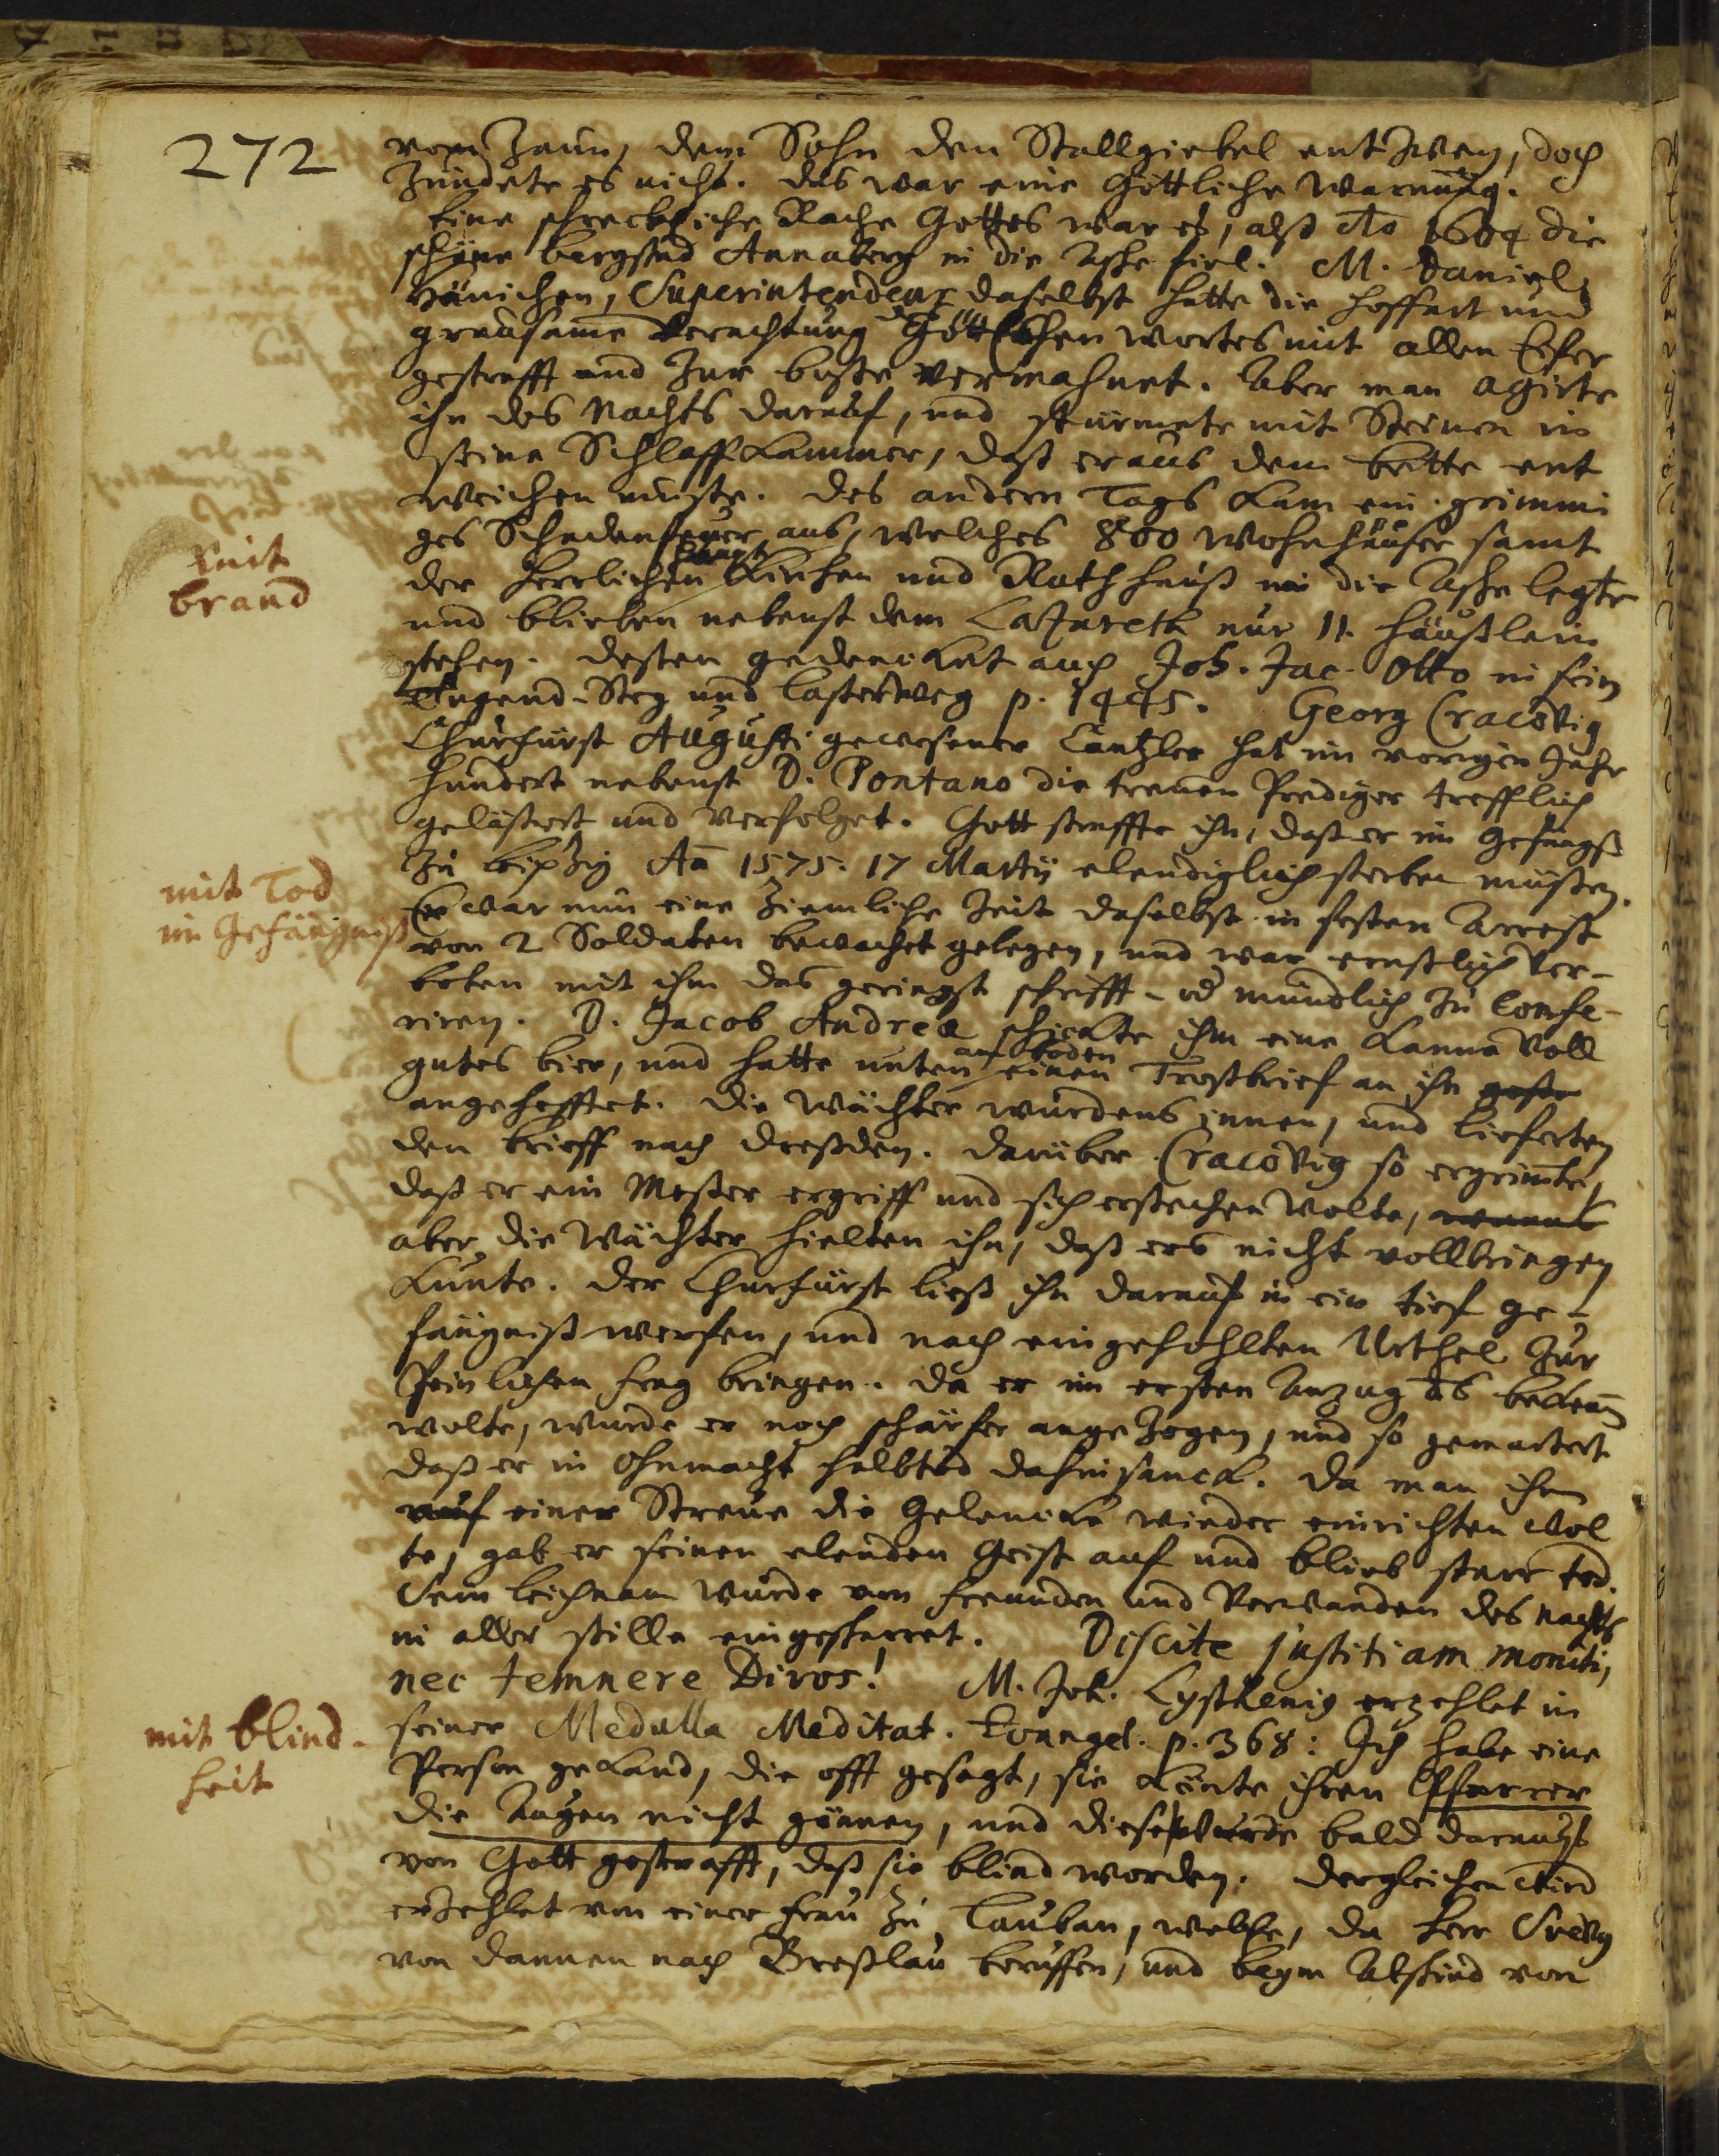 272
vom Zaun, dem Sohn den Stallgiebel entzwey, doch
zündete es nicht. Das war eine Göttliche Warnung.
Eine schreckliche Rache Gottes war es, alß Ao 1604 die
schöne bergstad Annaberg in die Asche fiel. M. Daniel
Hänichen, Superintendens daselbst hatte die Hoffart und
grausame Verachtung Göttlichen Wortes mit allen Eifer
gestrafft und zur buße vermahnet. Aber man agirte
ihn des Nachts darauf, und stürmete mit Steinen in
seine Schlaffkammer, daß er aus dem bette ent
weichen muste. Des andern Tags kam ein grimmi
ges Schadenfeuer aus, welches 800 Wohnhäuser samt
mit
brand
der herrlichen Haupt Kirchen und Rathhauß in die Asche legte
und blieben nebenst dem Lazareth nur 11. Häußlein
stehen. Dessen gedencket auch Joh. Jac. Otto in sein
Tugend-Steg und lasterweg p. 1445. Georg Cracovig
Churfürst Augusti gewesener Cantzler hat im vorigen Jahr
hundert nebenst D. Pontano die treuen Prediger trefflich
gelästert und verfolget. Gott straffte ihn, daß er im Gefängß
zu leipzig Aõ 1575. 17 Martij elendiglich sterben müßen.
mit Tod
im Gefängniß
Er war nun eine Ziemliche Zeit daselbst in festen Arrest
von 2 Soldaten bewachet gelegen, und war ernstlich ver-
boten mit ihm das geringst schrifft- od mündlich zu confe-
riren. D. Jacob Andreæ schickte ihm eine Kanna voll
gutes bier, und hatte unten am boden einen Trostbrief an ihn
angehefftet. Die Wächter wurdens innen, und lieferten
den brieff nach Dreßden. Darüber Cracovig so ergrimte,
daß er ein Messer ergriff und sich erstechen wolte,
aber die Wächter hielten ihn, daß ers nicht vollbringen
kunte. Der Churfürst ließ ihn darauf in ein tief ge-
fängniß werfen, und nach eingehohlten Urthel zur
Peinlichen frag bringen. Da er im ersten Anzug
wolte, wurde er noch schärfer angezogen, und so gemartert
daß er in Ohnmacht halbtod dahinsanck. Da man ihm
auf einer Streue die Gelencke wieder einrichten wol
te, gab er seinen elenden Geist auf und blieb starr tod.
Sein leichnam wurde von freunden und Verwanden des Nachts
in aller stille eingescharret. Discite justitiam moniti,
nec temnere Divos! M. Joh. Lysthenig erzehlet in
mit blind-
heit
seiner Medulla Meditat. Evangel. p. 368: Ich habe eine
Person gekand, die offt gesagt, sie könte ihren Pfarrer
die Augen nicht gönnen, und diese wurde bald darnach
von Gott gestrafft, daß sie blind worden. Dergleichen wird
erzehlet von einer frau zu Lauban, welche, da Herr
von dannen nach Breßlau beruffen, und beym Abschied von